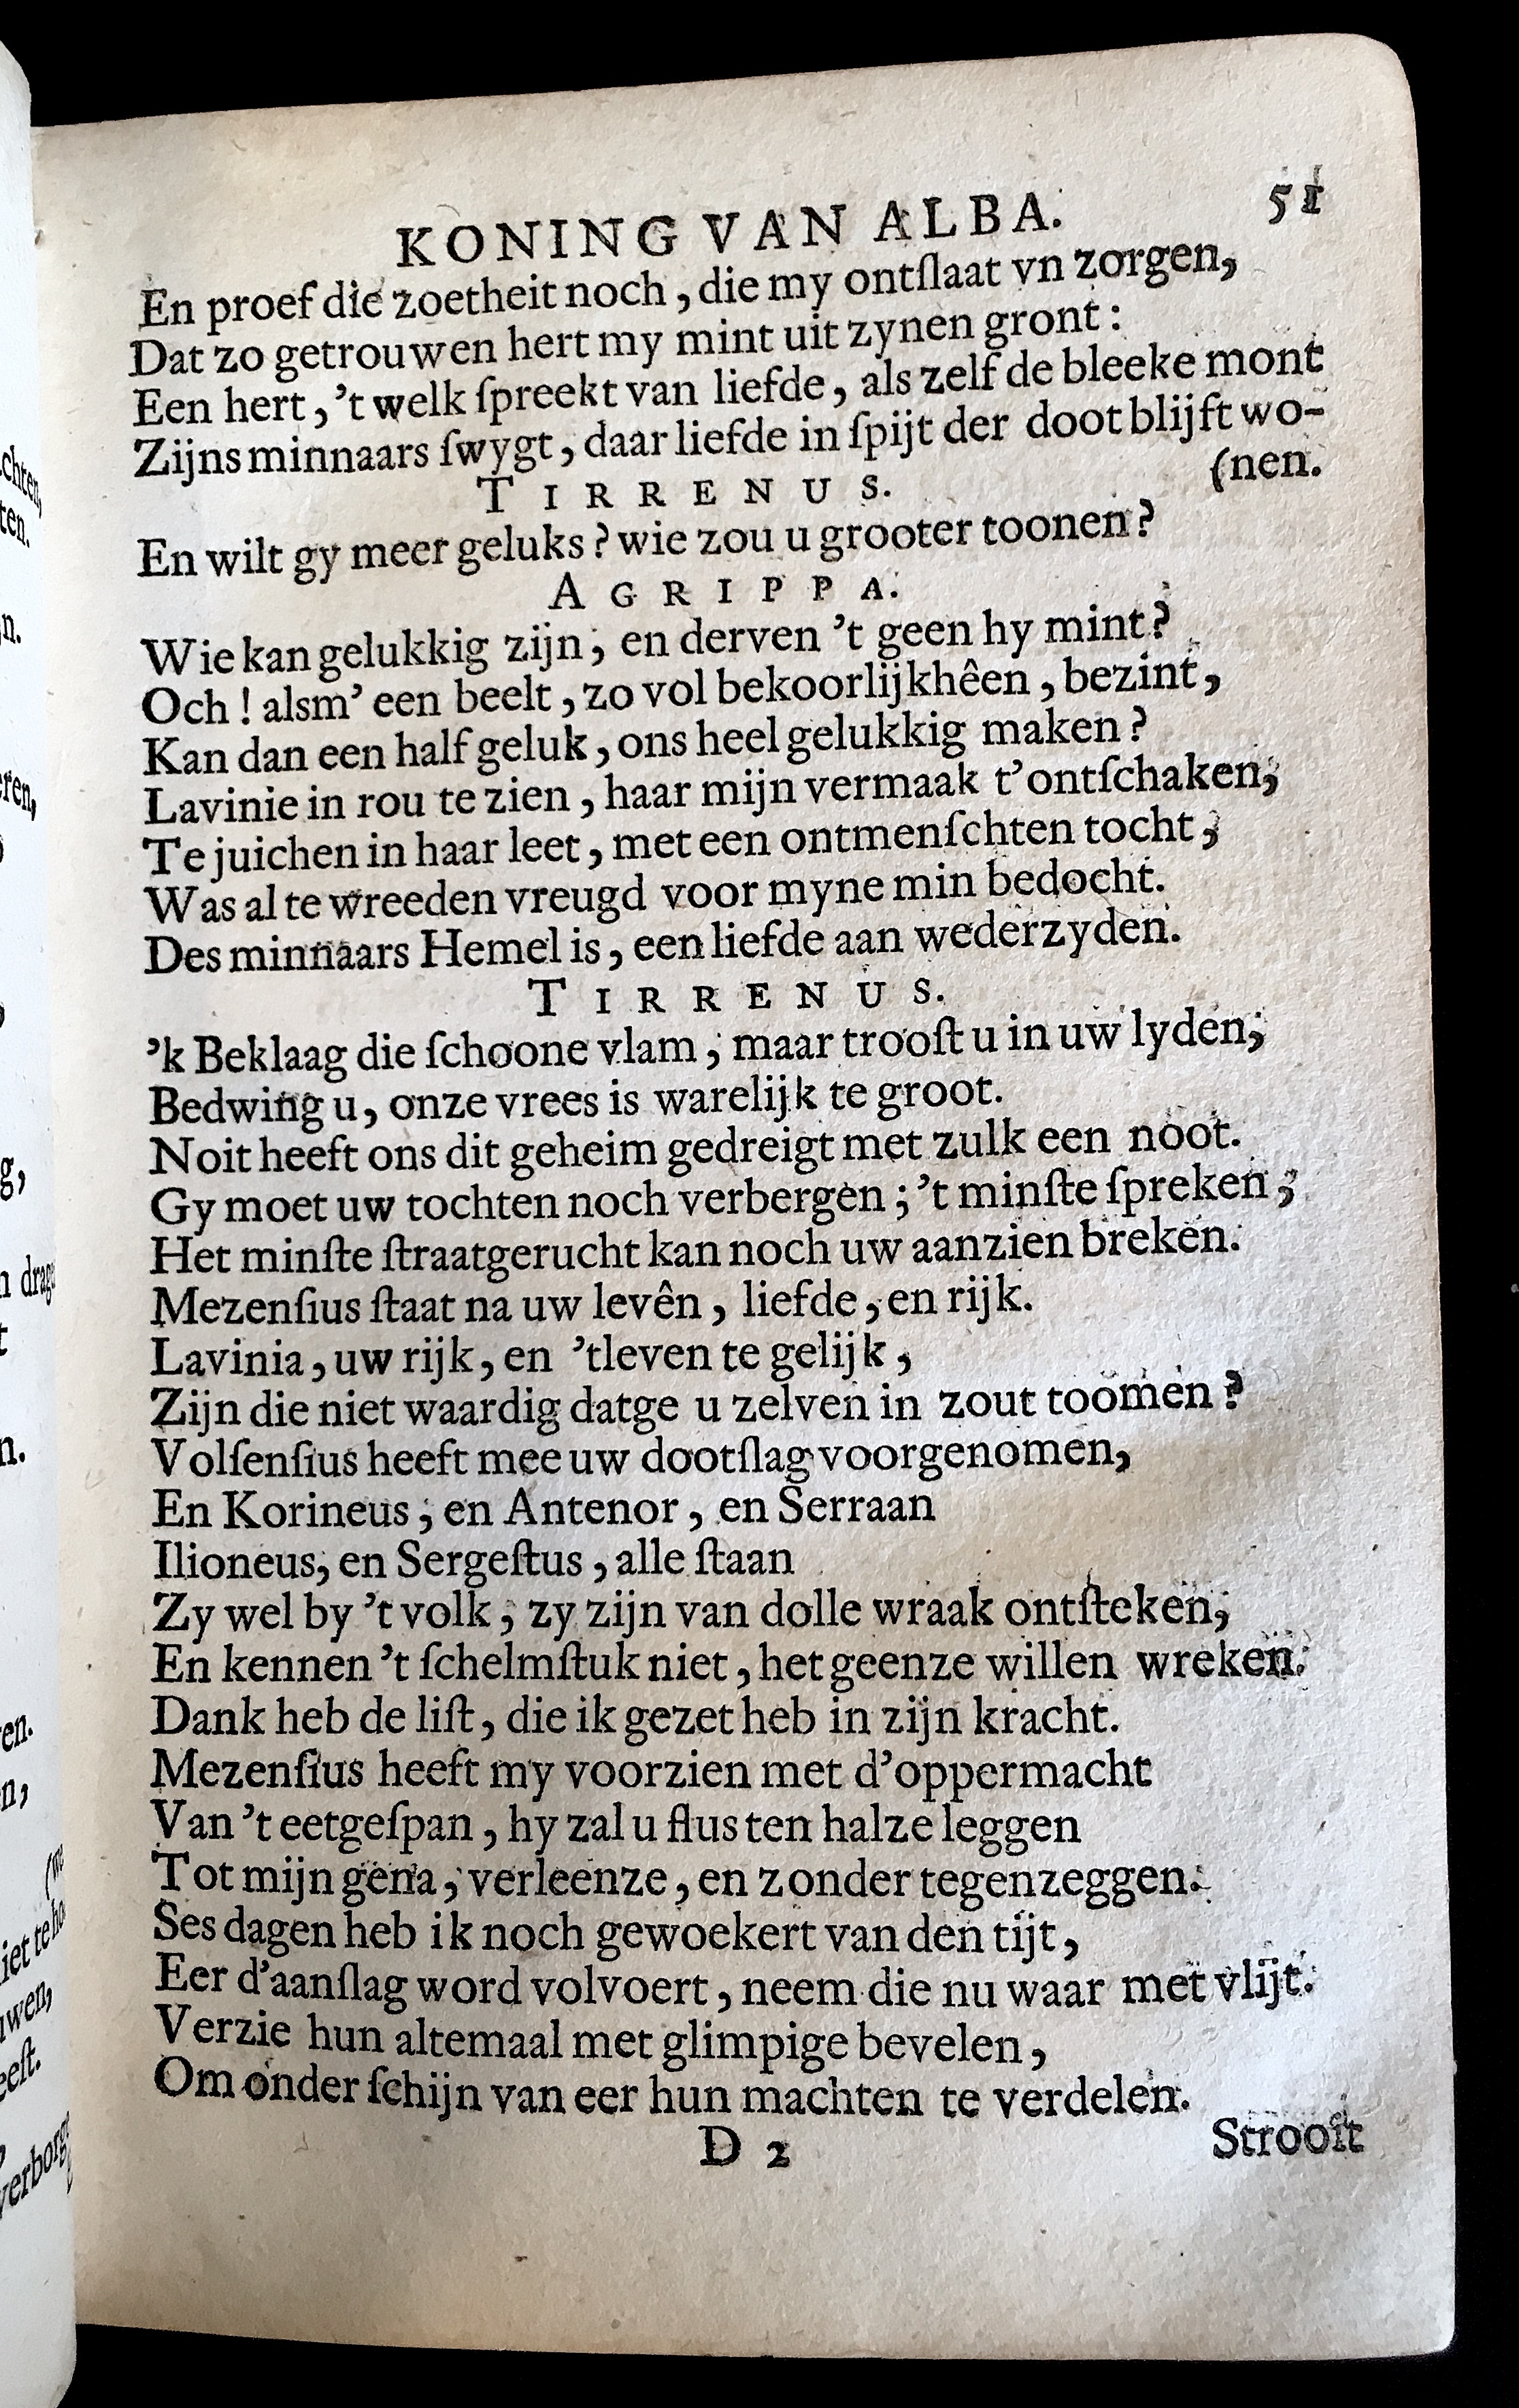 KONING VAN ALBA. 51
En proef die zoetheit noch, die my ontſlaat vn zorgen,
Dat zo getrouwen hert my mint uit zynen gront:
Een hert, 't welk ſpreekt van liefde, als zelf de bleeke mont
Zijns minnaars ſwygt, daar liefde in ſpijt der doot blijft wo-
(nen.
TIRRENUS.
En wilt gy meer geluks? wie zou u grooter toonen?
AGRIPPA.
Wie kan gelukkig zijn, en derven 't geen hy mint?
Och! alsm' een beelt, zo vol bekoorlijkhêen, bezint,
Kan dan een half geluk, ons heel gelukkig maken?
Lavinie in rou te zien, haar mijn vermaak t'ontſchaken,
Te juichen in haar leet, met een ontmenſchten tocht,
Was al te wreeden vreugd voor myne min bedocht.
Des minnaars Hemel is, een liefde aan wederzyden.
TIRRENUS.
'k Beklaag die ſchoone vlam, maar trooſt u in uw lyden,
Bedwing u, onze vrees is warelijk te groot.
Noit heeft ons dit geheim gedreigt met zulk een noot.
Gy moet uw tochten noch verbergen; 't minſte ſpreken,
Het minſte ſtraatgerucht kan noch uw aanzien breken.
Mezenſius ſtaat na uw levên, liefde, en rijk.
Lavinia, uw rijk, en 'tleven te gelijk,
Zijn die niet waardig datge u zelven in zout toomen?
Volſenſius heeft mee uw dootſlag voorgenomen,
En Korineus, en Antenor, en Serraan
Ilioneus, en Sergeſtus, alle ſtaan
Zy wel by 't volk, zy zijn van dolle wraak ontſteken,
En kennen 't ſchelmſtuk niet, het geenze willen wreken.
Dank heb de liſt, die ik gezet heb in zijn kracht.
Mezenſius heeft my voorzien met d'oppermacht
Van 't eetgeſpan, hy zal u flus ten halze leggen
Tot mijn gena, verleenze, en zonder tegenzeggen.
Ses dagen heb ik noch gewoekert van den tijt,
Eer d'aanſlag word volvoert, neem die nu waar met vlijt.
Verzie hun altemaal met glimpige bevelen,
Om onder ſchijn van eer hun machten te verdelen.
D 2 Strooit